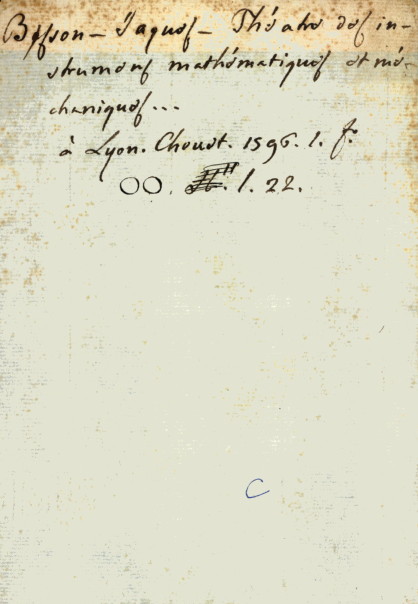 Besson - Jaques - Théatre des in-
strumens mathématiques et mé-
chaniques...
à Lyon. Chouet. 1596. 1. f.
OO. 1. 22.
C